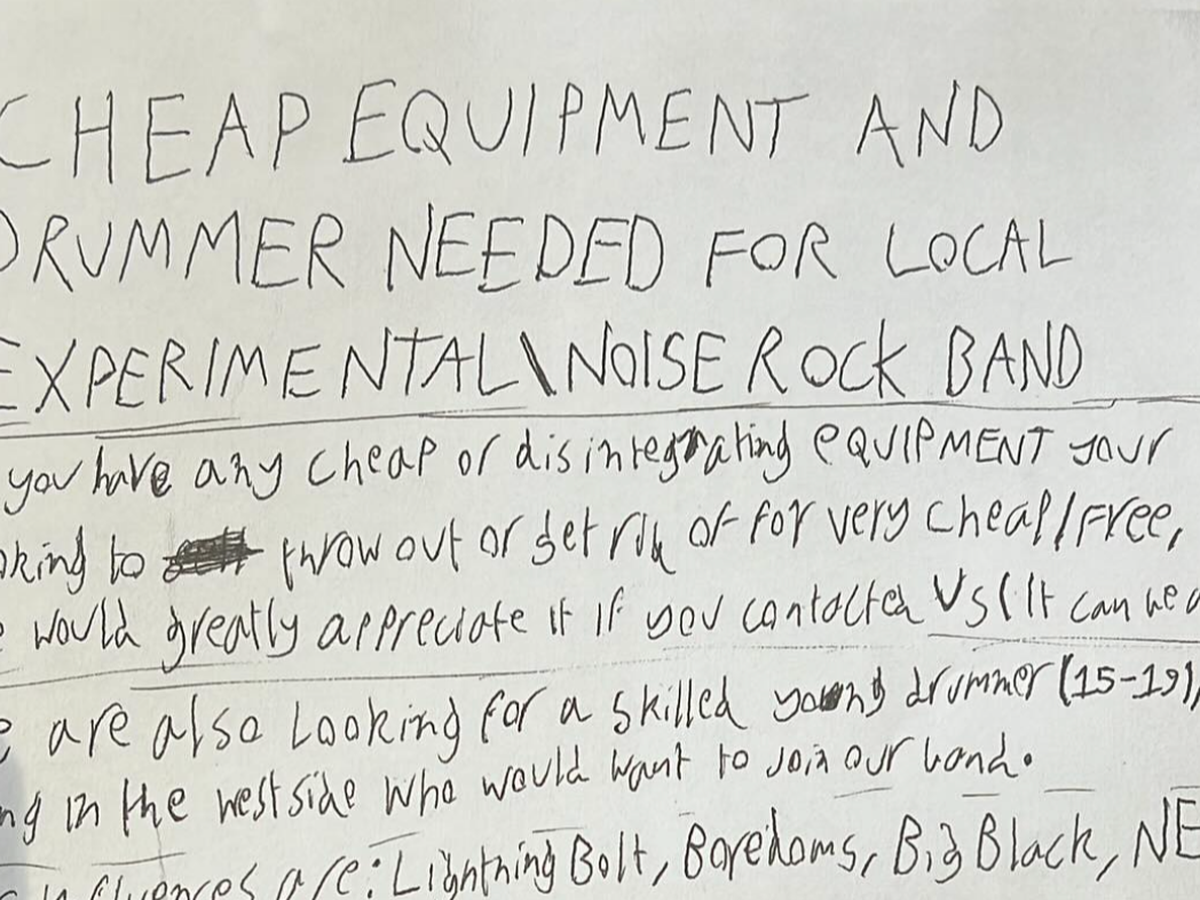 CHEAP EQUIPMENT AND
DRUMMER NEEDED FOR LOCAL
EXPERIMENTAL\NOISE ROCK BAND
you have any cheap or disintegrating eQUIPMENT your
oking to throw out or get rid of for very cheap/free,
e would greatly appreciate it if you contacted us (It can be a
e are also Looking for a skilled young drummer (15-19),
ng in the westside who would want to join our band.
influences are: Lightning Bolt, Boredoms, Big Black, NE